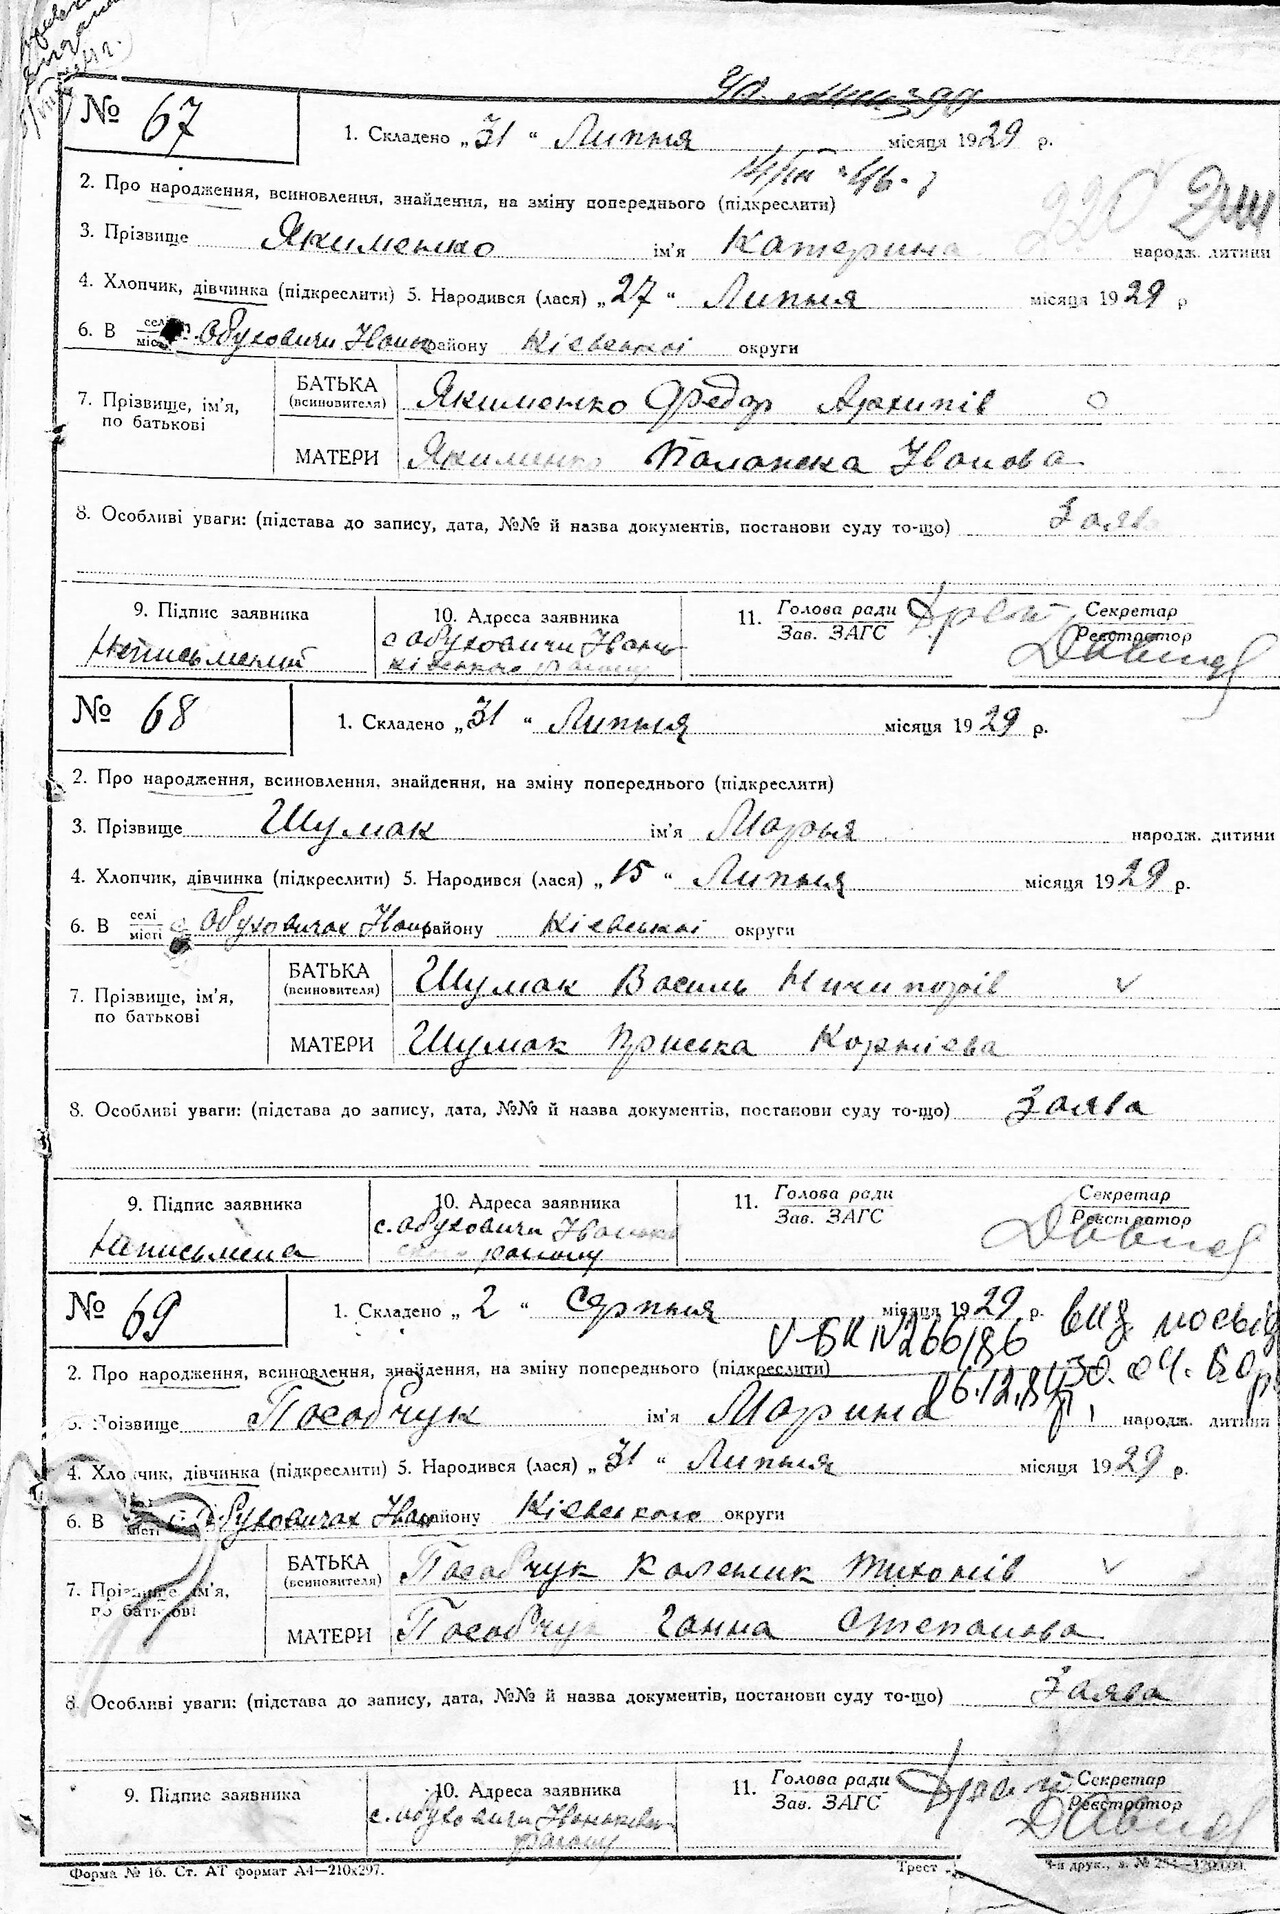 № 67
1. Складено „31“ Липня місяця 1929 р.
2. Про народження, всиновлення, знайдення, на зміну попереднього (підкреслити)
3. Прізвище Якименко ім'я Катерина народж. дитини
4. Хлопчик, дівчинка (підкреслити) 5. Народився (лася) „27“ Липня місяця 1929 р
6. В селі місті Обуховичи Іваньк району Кієвської округи
7. Прізвище, ім'я, по батькові
БАТЬКА (всиновителя) Якименко Федор Архипів
МАТЕРИ Якименко Палажка Іванова
8. Особливі уваги: (підстава до запису, дата, №№ й назва документів, постанови суду то-що) Заява
9. Підпис заявника 10. Адреса заявника 11. Голова ради Секретар
Зав. ЗАГС Реєстратор
Неписьмений с Обуховичи Івань-
ківського району
№ 68
1. Складено „31“ Липня місяця 1929 р.
2. Про народження, всиновлення, знайдення, на зміну попереднього (підкреслити)
3. Прізвище Шумак ім'я Марья народж. дитини
4. Хлопчик, дівчинка (підкреслити) 5. Народився (лася) „15“ Липня місяця 1929 р.
6. В селі місті Обуховичах Іван району Кієвської округи
7. Прізвище, ім'я, по батькові
БАТЬКА (всиновителя) Шумак Василь Ничипорів
МАТЕРИ Шумак Приська Корнієва
8. Особливі уваги: (підстава до запису, дата, №№ й назва документів, постанови суду то-що) Заява
9. Підпис заявника 10. Адреса заявника 11. Голова ради Секретар
Зав. ЗАГС Реєстратор
Неписьмена с. Обуховичи Іваньків
ського району
№ 69
1. Складено „2“ Серпня місяця 1929 р.
V-БК N 266186
2. Про народження, всиновлення, знайдення, на зміну попереднього (підкреслити)
3. Прізвище Пособчук ім'я Марина народж. дитини
4. Хлопчик, дівчинка (підкреслити) 5. Народився (лася) „31“ Липня місяця 1929 р.
6. В місті Обуховичах Іван району Кієвського округи
7. Прізвище, ім'я, по батькові
БАТЬКА (всиновителя) Пособчук Каленик Тихонів
МАТЕРИ Пособчук Ганна Степанова
8. Особливі уваги: (підстава до запису, дата, №№ й назва документів, постанови суду то-що) Заява
9. Підпис заявника 10. Адреса заявника 11. Голова ради Секретар
Зав. ЗАГС Реєстратор
с. Обуховичи Іваньків
району
Форма № 16. Ст. АТ формат А4—210х297. Трест